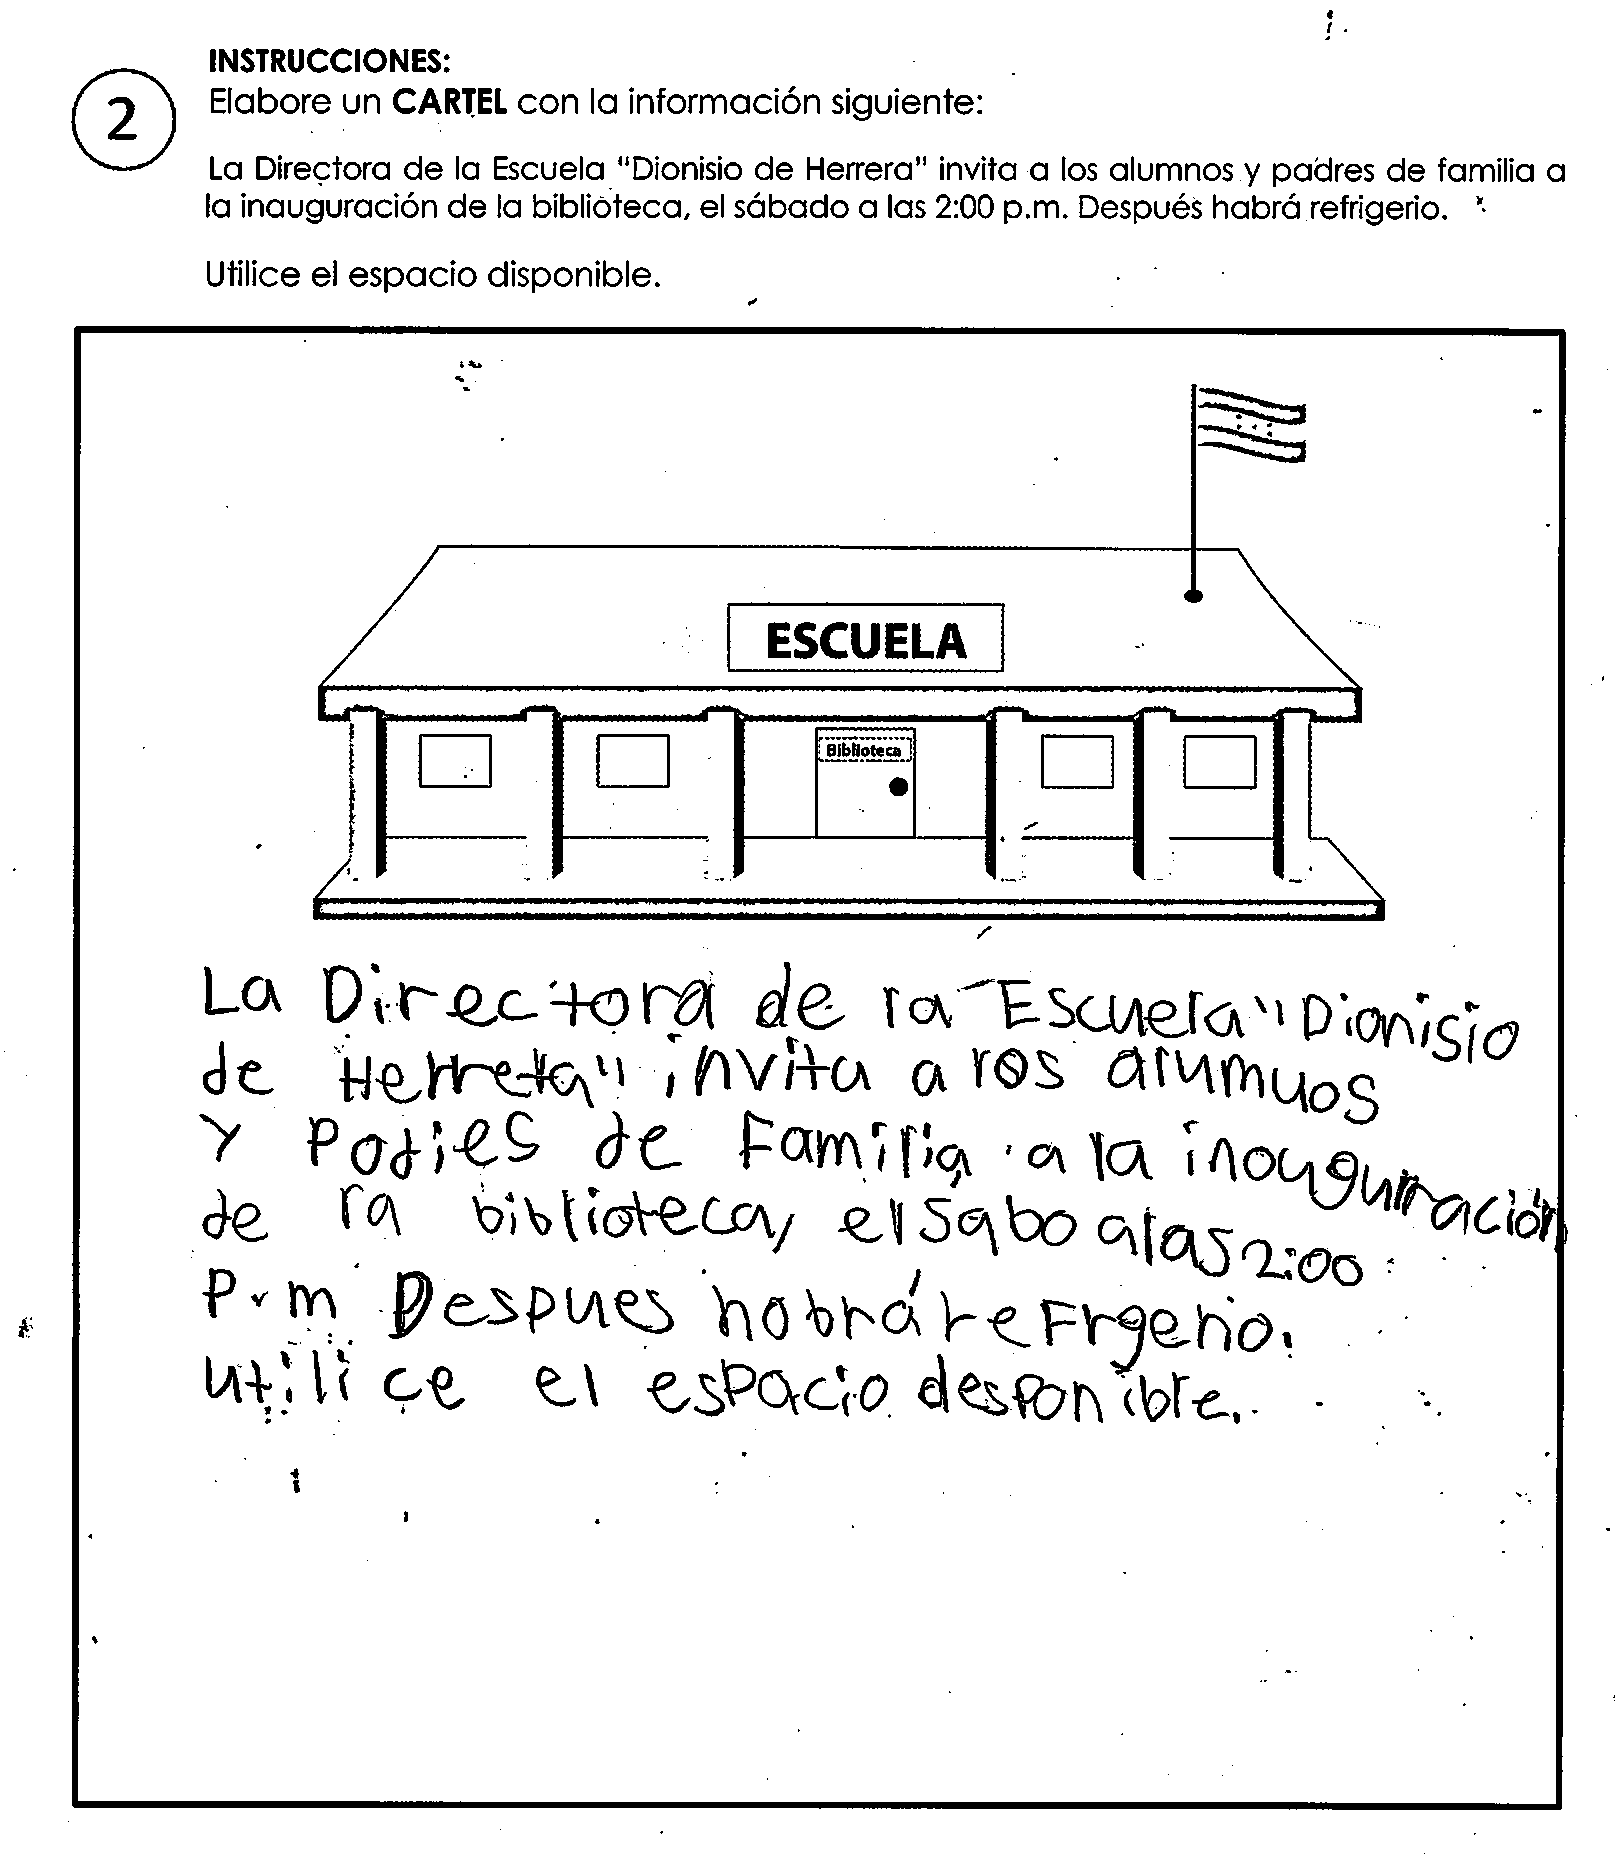 INSTRUCCIONES:
2
Elabore un CARTEL con la información siguiente:
La Directora de la Escuela "Dionisio de Herrera" invita a los alumnos y padres de familia a
la inauguración de la biblioteca, el sábado a las 2:00 p.m. Después habrá refrigerio.
Utilice el espacio disponible.
ESCUELA
Biblioteca
La Directora de la Escuela "Dionisio
de Herrera" invita a los alumuos
y Podies de Familia a la inouguración
de la biblioteca, el Sabo a las 2:00
P.m Despues hobrá reFrgerio.
utilice el espacio desponible.